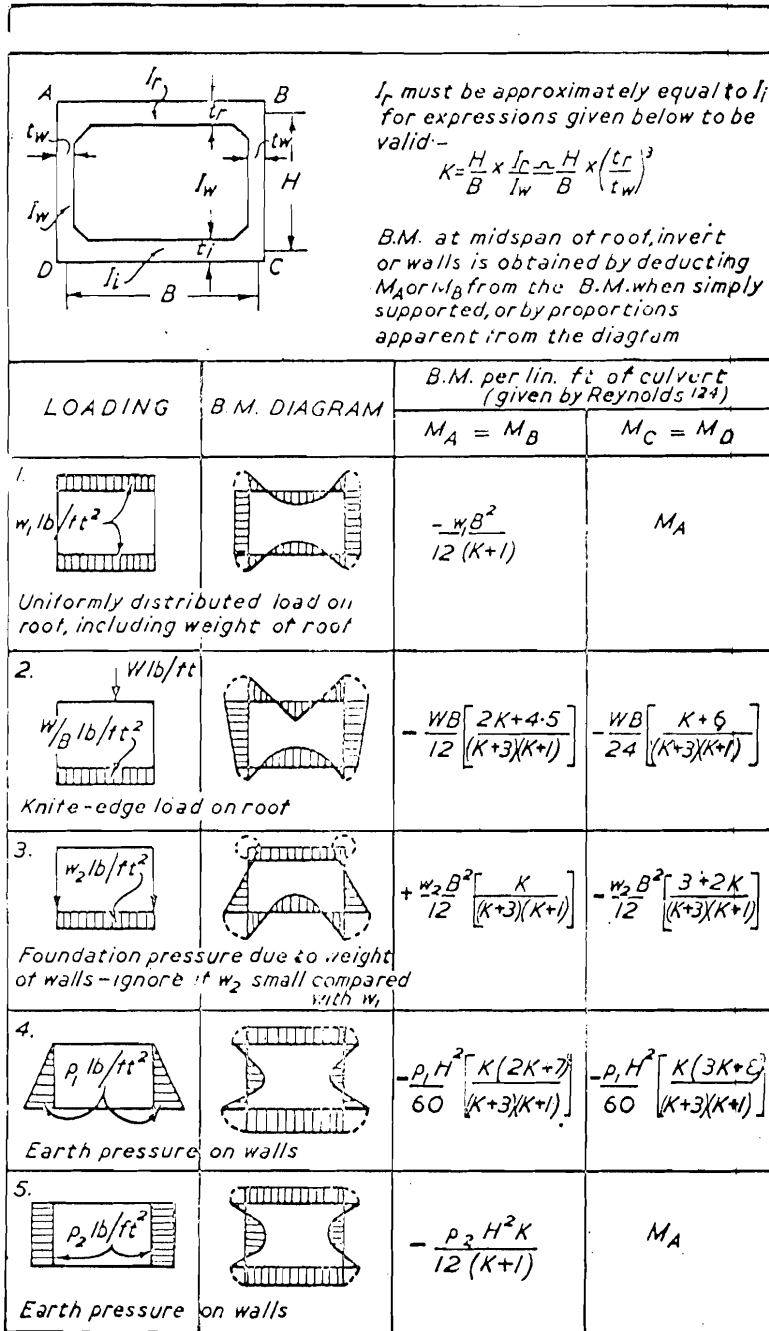 A
I_r
B
t_r
t_w
t_w
H
I_w
I_w
t_i
D
I_i
C
B
I_r must be approximately equal to I_i
for expressions given below to be
valid:-
K = H/B × I_r/I_w ≏ H/B × (t_r/t_w)^3
B.M. at midspan of roof, invert
or walls is obtained by deducting
M_A or M_B from the B.M. when simply
supported, or by proportions
apparent from the diagram
LOADING
B.M. DIAGRAM
B.M. per lin. ft of culvert
(given by Reynolds 124)
M_A = M_B
M_C = M_D
1.
w_1 lb/ft^2
Uniformly distributed load on
roof, including weight of roof
-w_1B^2 / 12(K+1)
M_A
2.
W lb/ft
W/B lb/ft^2
Knife-edge load on roof
- WB/12 [2K+4·5 / (K+3)(K+1)]
- WB/24 [K+6 / (K+3)(K+1)]
3.
w_2 lb/ft^2
Foundation pressure due to weight
of walls - ignore if w_2 small compared
with w_1
+ w_2B^2/12 [K / (K+3)(K+1)]
- w_2B^2/12 [3+2K / (K+3)(K+1)]
4.
p_1 lb/ft^2
Earth pressure on walls
- p_1H^2/60 [K(2K+7) / (K+3)(K+1)]
- p_1H^2/60 [K(3K+8) / (K+3)(K+1)]
5.
p_2 lb/ft^2
Earth pressure on walls
- p_2H^2K / 12(K+1)
M_A